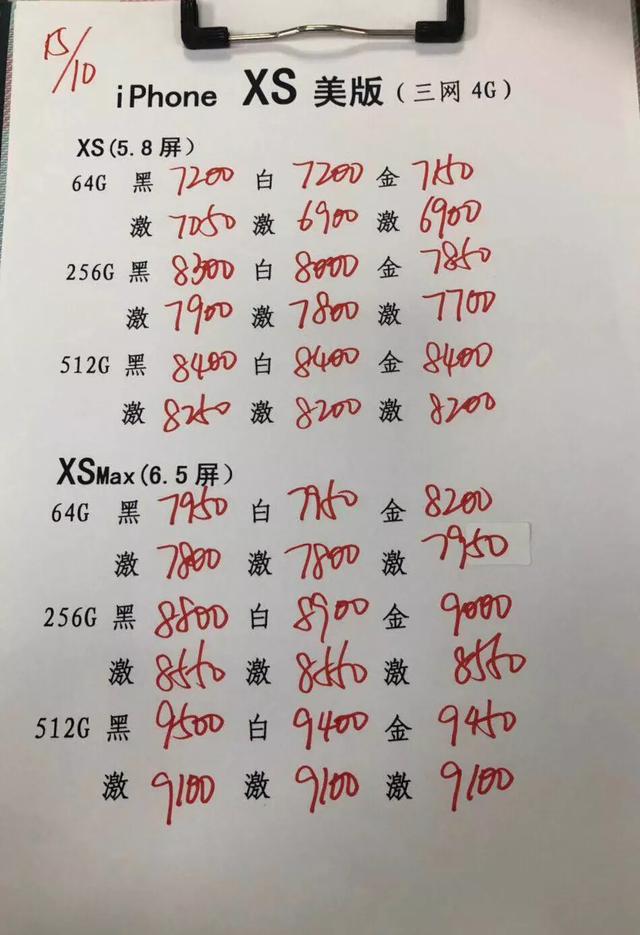 15/10
iPhone XS 美版(三网 4G)
XS(5.8 屏)
64G 黑 7200 白 7200 金 7150
激 7050 激 6900 激 6900
256G 黑 8300 白 8000 金 7850
激 7900 激 7800 激 7700
512G 黑 8400 白 8400 金 8400
激 8250 激 8200 激 8200
XSMax(6.5 屏)
64G 黑 7950 白 7950 金 8200
激 7800 激 7800 激 7950
256G 黑 8800 白 8900 金 9000
激 8550 激 8550 激 8550
512G 黑 9500 白 9400 金 9450
激 9100 激 9100 激 9100